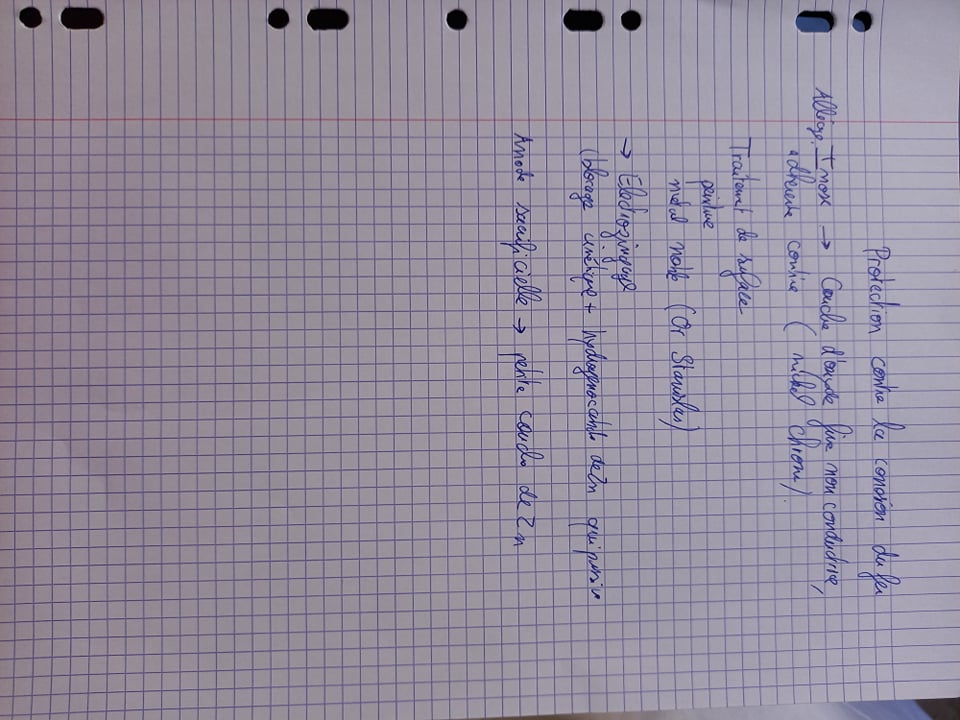 Protection contre la corrosion du fer
Alliage: Inox → Couche d'oxyde fine non conductrice,
adhérente continue (nickel chrome).
Traitement de surface
peinture
métal noble (Or Stanislas)
→ Electrozingage
(blocage cinétique + hydrogénocarbonate de Zn qui passive
Anode sacrificielle → petite couche de Zn